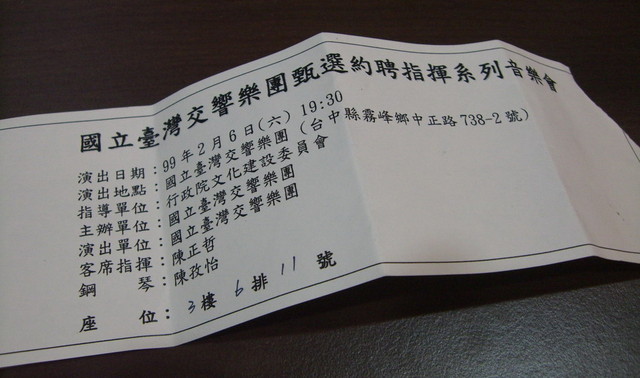 國立臺灣交響樂團甄選約聘指揮系列音樂會
演出日期：99年2月6日(六) 19:30
演出地點：國立臺灣交響樂團 (台中縣霧峰鄉中正路738-2號)
指導單位：行政院文化建設委員會
主辦單位：國立臺灣交響樂團
演出單位：國立臺灣交響樂團
客席指揮：陳正哲
鋼琴：陳孜怡
座位：3樓6排11號